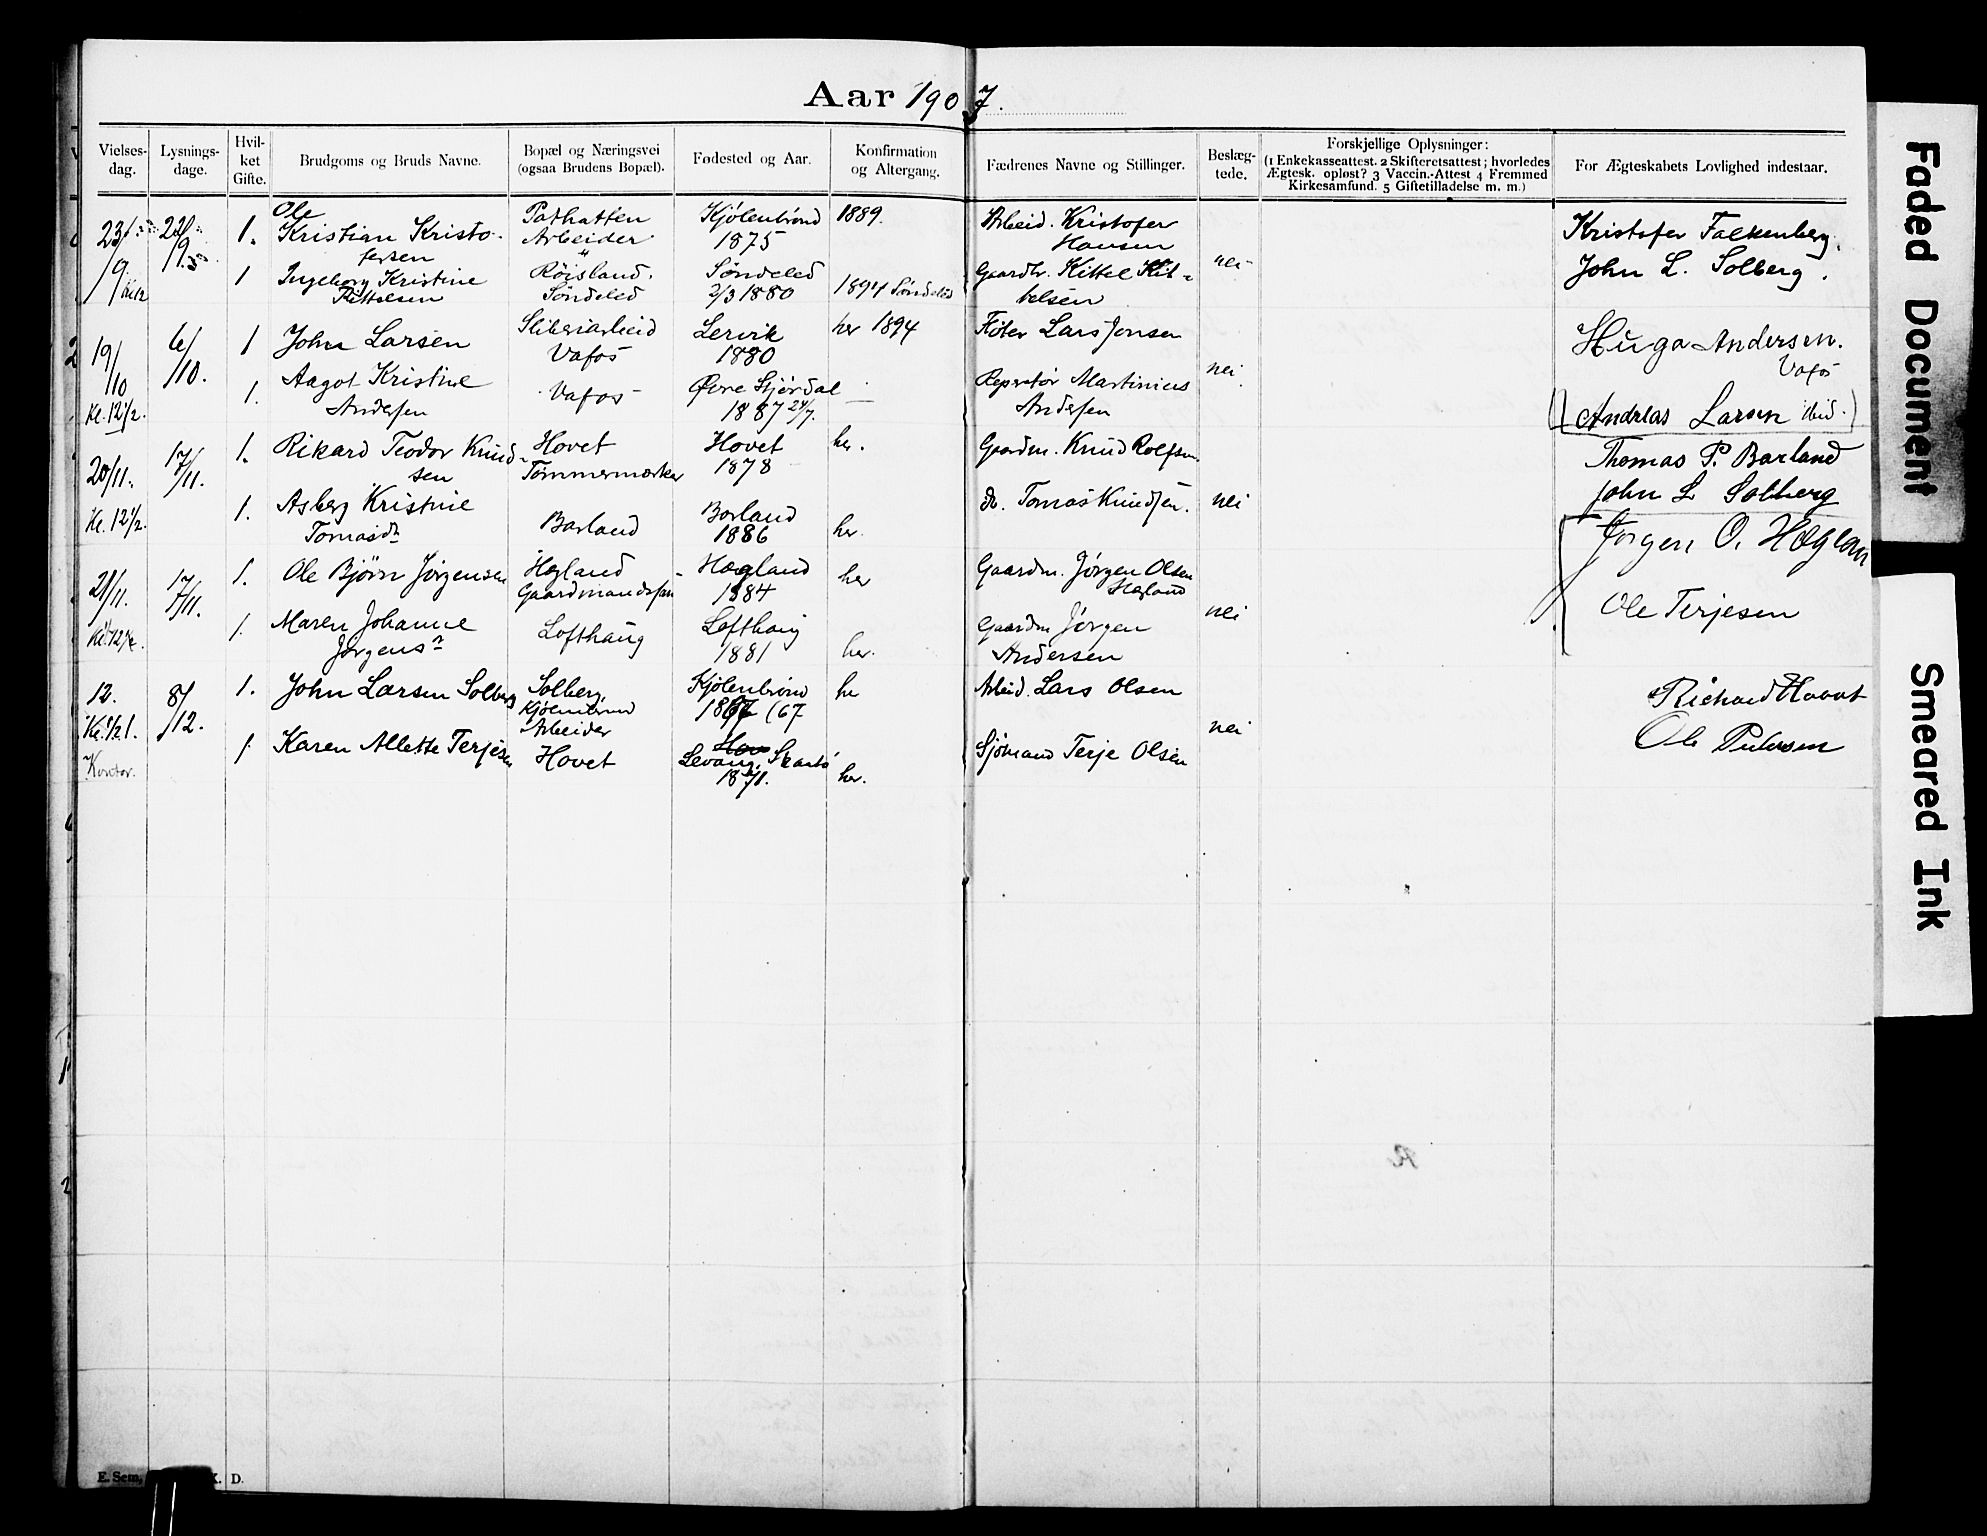 Aar 1907.
Vielses-dag. Lysnings-dage. Hvil-ket Gifte. Brudgoms og Bruds Navne. Bopæl og Næringsvei (ogsaa Brudens Bopæl). Fødested og Aar. Konfirmation og Altergang. Fædrenes Navne og Stillinger. Beslæg-tede. Forskjellige Oplysninger: (1 Enkekasseattest. 2 Skifteretsattest; hvorledes Ægtesk. opløst? 3 Vaccin.-Attest 4 Fremmed Kirkesamfund. 5 Giftetilladelse m. m.) For Ægteskabets Lovlighed indestaar.
23/9 1. Ole Kristian Kristo-fersen Arbeider Kjølenbrønd 1875 1889. Arbeid. Kristofer Hansen Kristofer Falkenberg.
1 Ingeborg Kristine Kittelsen Røisland. Søndeled Søndeled 2/3 1880 1894 Søndeled Gaardbr. Kittel Kit-telsen nei John L. Solberg.
19/10 6/10. 1 John Larsen Sliberiarbeid Vafos Lervik 1880 her 1894 Fløter Lars Jonsen Hugo Andersen. Vafos
Kl. 12 1/2. 1. Aagot Kristine Andersen Vafos Øvre Stjørdal 1887 24/7. — Martinius Andersen nei (Andreas Larsen ibid.)
20/11. 17/11. 1. Rikard Teodor Knud-sen Hovet Tømmermerker Hovet 1878 her. Gaardm. Knud Rolfsen. Thomas P. Barland
Kl. 12 1/2. 1. Asberg Kristine Tomasdn Barland Barland 1886 her. do. Tomas Knudsen. nei John L Solberg
21/11. 17/11. 1. Ole Bjørn Jørgensen Hegland Gaardmandsøn Hægland 1884 her Gaardm. Jørgen Olsen Hegland Jørgen O. Hæglan
1. Maren Johanne Jørgensn Lofthaug Lofthaug 1881 her. Gaardm Jørgen Andersen nei Ole Terjesen
12. 8/12. 1. John Larsen Solberg Solberg, Kjølenbrønd Arbeider Kjølenbrønd 1867 (67 he Arbeid. Lars Olsen Richard Hovet
Kl. 1/2 1. Kontor. 1. Karen Allette Terjesen Hovet Levang, Skaatø 1871. her. Sjømand Terje Olsen nei Ole Pedersen
E. Sem, K. D.
Faded Document
Smeared Ink